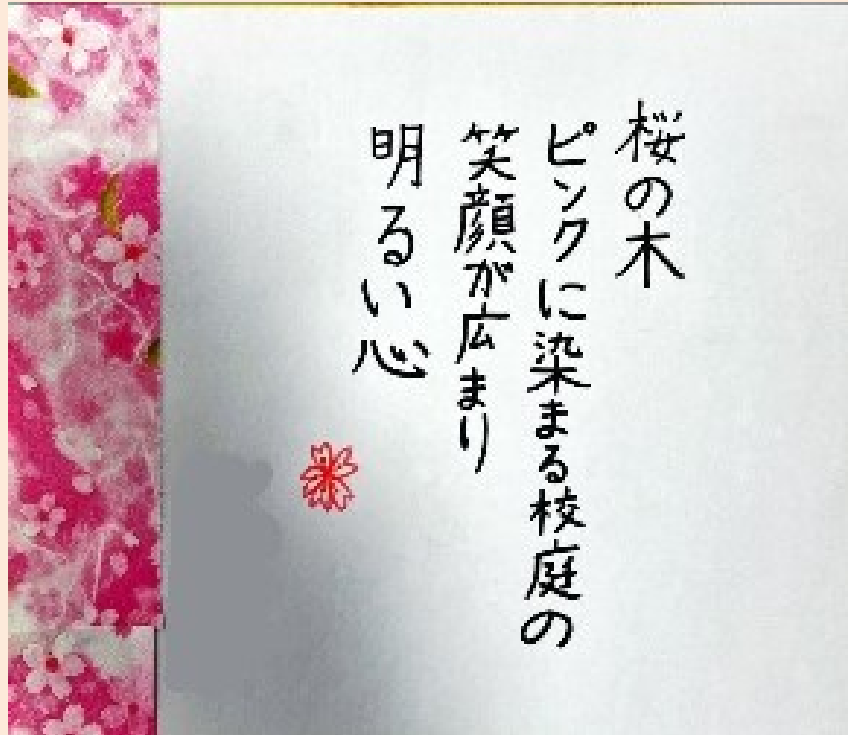 桜の木
ピンクに染まる校庭の
笑顔が広まり
明るい心